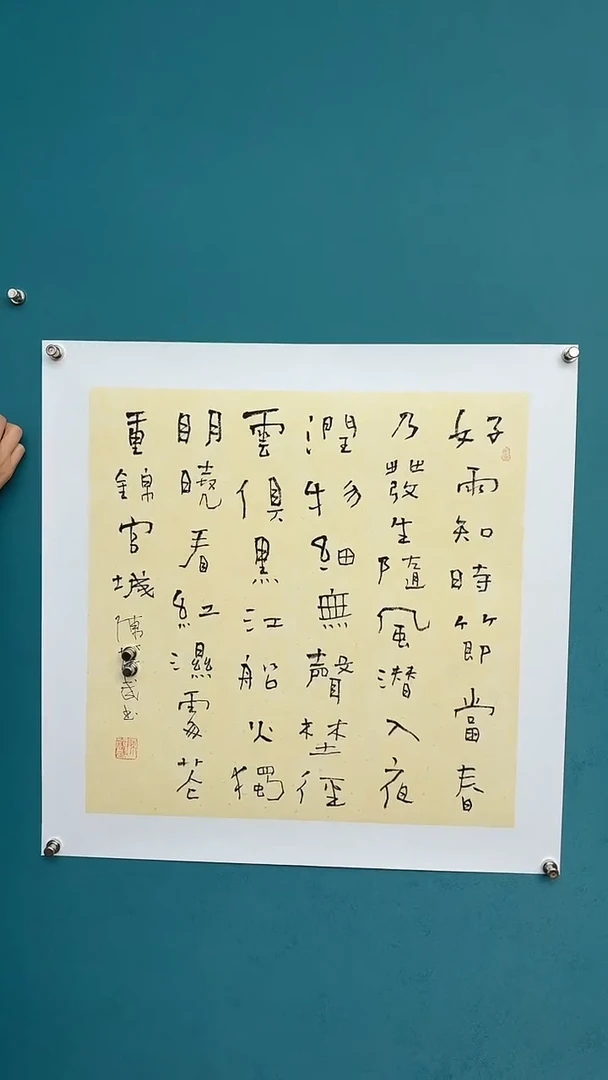 好雨知時節當春
乃發生隨風潛入夜
潤物細無聲埜徑
雲俱黑江船火獨
明曉看紅濕處花
重錦官城
陳